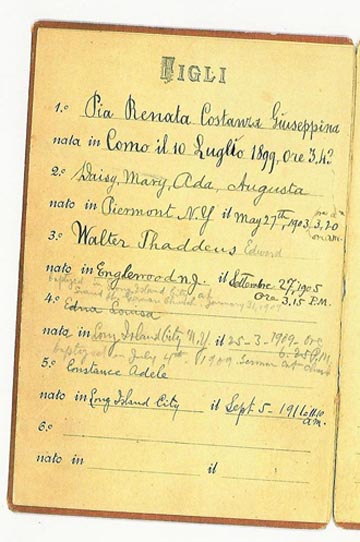 FIGLI
1.º Pia Renata Costanza Giuseppina
nata in Como il 10 Luglio 1899, ore 3,4?
2.º Daisy, Mary, Ada, Augusta
nato in Piermont N.Y il May 27th, 1903, 3,20
3.º Walter Thaddeus Edward
nato in Englewood N.J. il Settembre 27, 1905
Ore 3.15 P.M.
baptized in Long Island City at
German Church - January 31, 1909
4.º Edna Louisa
nata in Long Island City N.Y. il 25-3-1909 - ore
6.25 P.M.
baptized on July 4th 1909 German
5.º Constance Adele
nato in Long Island City il Sept 5 - 1911
am.
6.º
nato in il